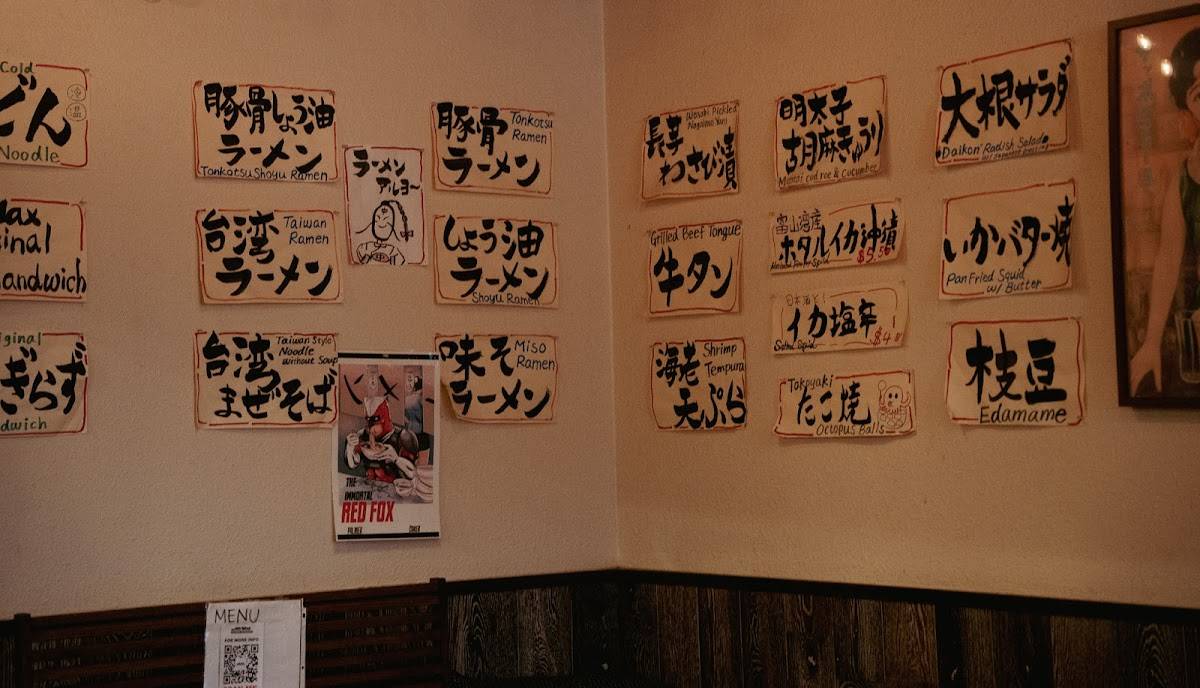 Cold
どん
冷
温
Noodle
Max
andwich
ぎらず
dwich
豚骨しょう油
ラーメン
Tonkotsu Shoyu Ramen
台湾
ラーメン
Taiwan
Ramen
台湾
まぜそば
Taiwan Style
Noodle
Without Soup
ラーメン
アルヨー
豚骨
ラーメン
Tonkotsu
Ramen
しょう油
ラーメン
Shoyu Ramen
味そ
ラーメン
Miso
Ramen
THE
IMMORTAL
RED FOX
MENU
FOR MORE INFO
長芋
わさび漬
Wasabi Pickled
Nagaimo Yam
Grilled Beef Tongue
牛タン
海老
天ぷら
Shrimp
Tempura
明太子
胡麻きゅうり
Mentai cod roe & Cucumber
富山湾産
ホタルイカ沖漬
$5.50
イカ塩辛
$4
Salted Squid
Takoyaki
たこ焼
Octopus Balls
大根サラダ
Daikon Radish Salad
いかバター焼
Pan Fried Squid
w/ Butter
枝豆
Edamame